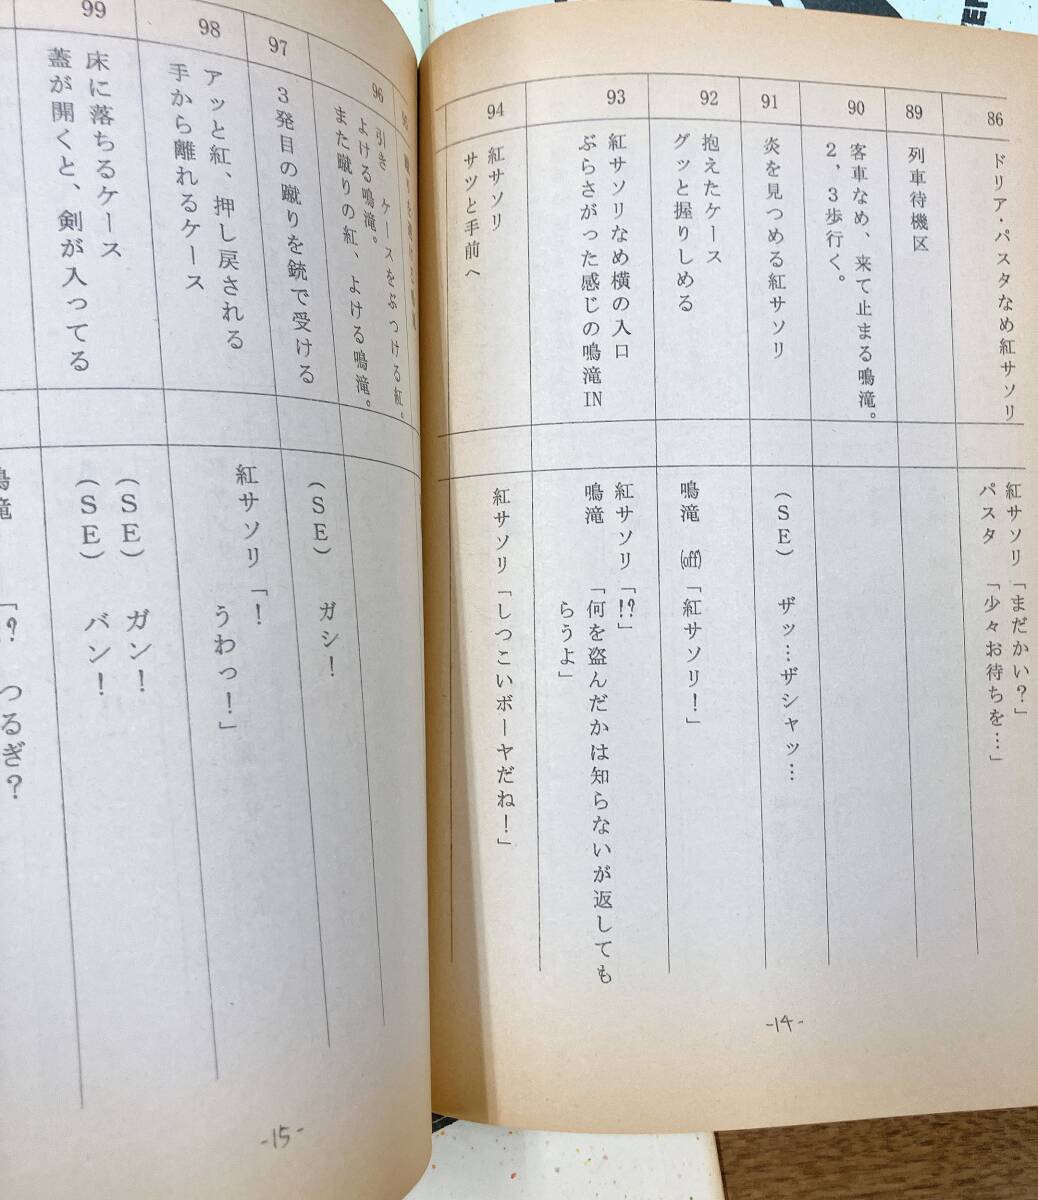 86
ドリア・パスタなめ紅サソリ
紅サソリ「まだかい？」
パスタ　「少々お待ちを…」
89
列車待機区
90
客車なめ、来て止まる鳴滝。
2，3歩行く。
91
炎を見つめる紅サソリ
（ＳＥ）　ザッ…ザシャッ…
92
抱えたケース
グッと握りしめる
鳴滝　(off)「紅サソリ！」
93
紅サソリなめ横の入口
ぶらさがった感じの鳴滝IN
紅サソリ「!?」
鳴滝　　「何を盗んだかは知らないが返しても
らうよ」
94
紅サソリ
サツと手前へ
紅サソリ「しつこいボーヤだね！」
-14-
96
引き　ケースをぶつける紅。
よける鳴滝。
また蹴りの紅、よける鳴滝。
97
3発目の蹴りを銃で受ける
（ＳＥ）　ガシ！
98
アッと紅、押し戻される
手から離れるケース
紅サソリ「！
うわっ！」
99
床に落ちるケース
蓋が開くと、剣が入ってる
（ＳＥ）　ガン！
（ＳＥ）　バン！
鳴滝　　「？　つるぎ？
-15-